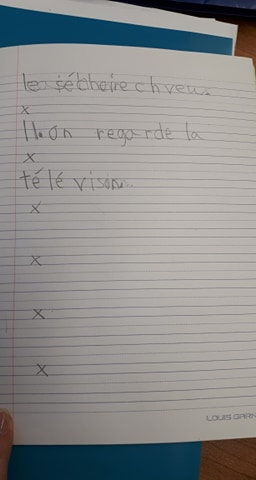 le sébheire chveus
x
Il on regarde la
x
télé vison..
x
x
x
x
LOUIS GRAN